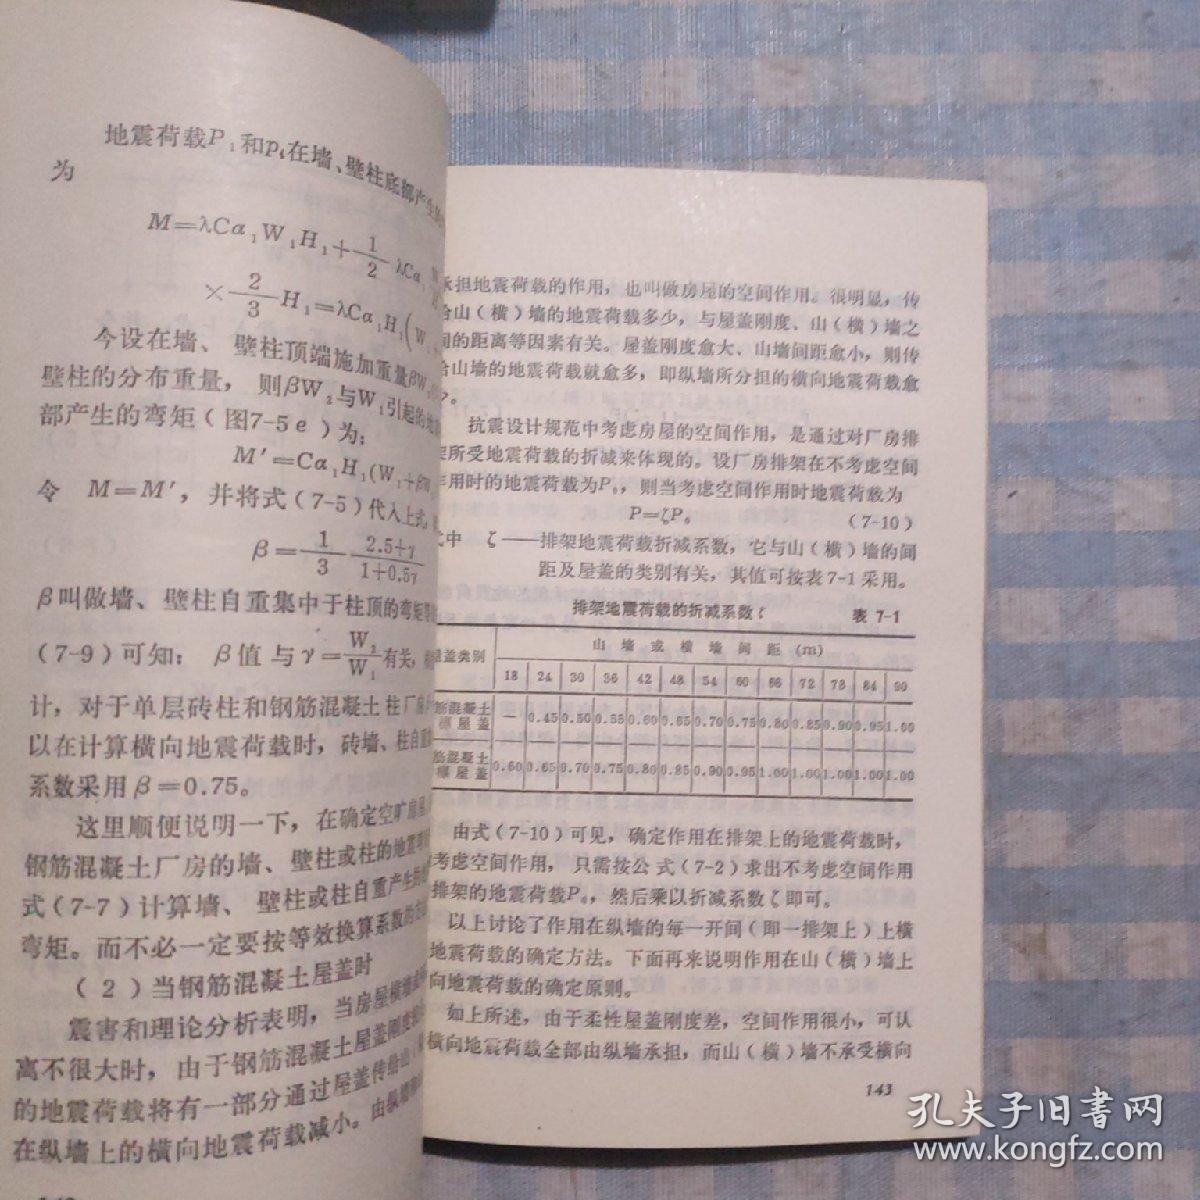 地震荷载P₁和p₁在墙、壁柱底部产生
为
M=λCα₁W₁H₁+1/2 λCα₁
×2/3 H₁=λCα₁H₁(W
今设在墙、壁柱顶端施加重量βW
壁柱的分布重量，则βW₂与W₁引起的地
部产生的弯矩(图7-5e)为：
M′=Cα₁H₁(W₁+βW
令 M=M′，并将式(7-5)代入上式，
β=1/3 2.5+γ/1+0.5γ
β叫做墙、壁柱自重集中于柱顶的弯矩等
(7-9)可知：β值与γ=W₂/W₁有关，
计，对于单层砖柱和钢筋混凝土柱厂房
以在计算横向地震荷载时，砖墙、柱自重
系数采用β=0.75。
这里顺便说明一下，在确定空旷房屋
钢筋混凝土厂房的墙、壁柱或柱的地震
式(7-7)计算墙、壁柱或柱自重产生的
弯矩。而不必一定要按等效换算系数的方
(2)当钢筋混凝土屋盖时
震害和理论分析表明，当房屋横墙
离不很大时，由于钢筋混凝土屋盖刚度
的地震荷载将有一部分通过屋盖传给山(
在纵墙上的横向地震荷载减小。由纵墙
承担地震荷载的作用，也叫做房屋的空间作用。很明显，传
给山(横)墙的地震荷载多少，与屋盖刚度、山(横)墙之
间的距离等因素有关。屋盖刚度愈大、山墙间距愈小，则传
给山墙的地震荷载就愈多，即纵墙所分担的横向地震荷载愈
少。
抗震设计规范中考虑房屋的空间作用，是通过对厂房排
架所受地震荷载的折减来体现的。设厂房排架在不考虑空间
作用时的地震荷载为P₀，则当考虑空间作用时地震荷载为
P=ζP₀ (7-10)
式中 ζ——排架地震荷载折减系数，它与山(横)墙的间
距及屋盖的类别有关，其值可按表7-1采用。
排架地震荷载的折减系数ζ 表 7-1
屋盖类别 山墙或横墙间距(m)
18 24 30 36 42 48 54 60 66 72 78 84 90
筋混凝土
檩屋盖 — 0.45 0.50 0.55 0.60 0.65 0.70 0.75 0.80 0.85 0.90 0.95 1.00
筋混凝土
檩屋盖 0.60 0.65 0.70 0.75 0.80 0.85 0.90 0.95 1.00 1.00 1.00 1.00 1.00
由式(7-10)可见，确定作用在排架上的地震荷载时，
考虑空间作用，只需按公式(7-2)求出不考虑空间作用
排架的地震荷载P₀，然后乘以折减系数ζ即可。
以上讨论了作用在纵墙的每一开间(即一排架上)上横
地震荷载的确定方法。下面再来说明作用在山(横)墙上
向地震荷载的确定原则。
如上所述，由于柔性屋盖刚度差，空间作用很小，可认
横向地震荷载全部由纵墙承担，而山(横)墙不承受横向
143
孔夫子旧书网
www.kongfz.com